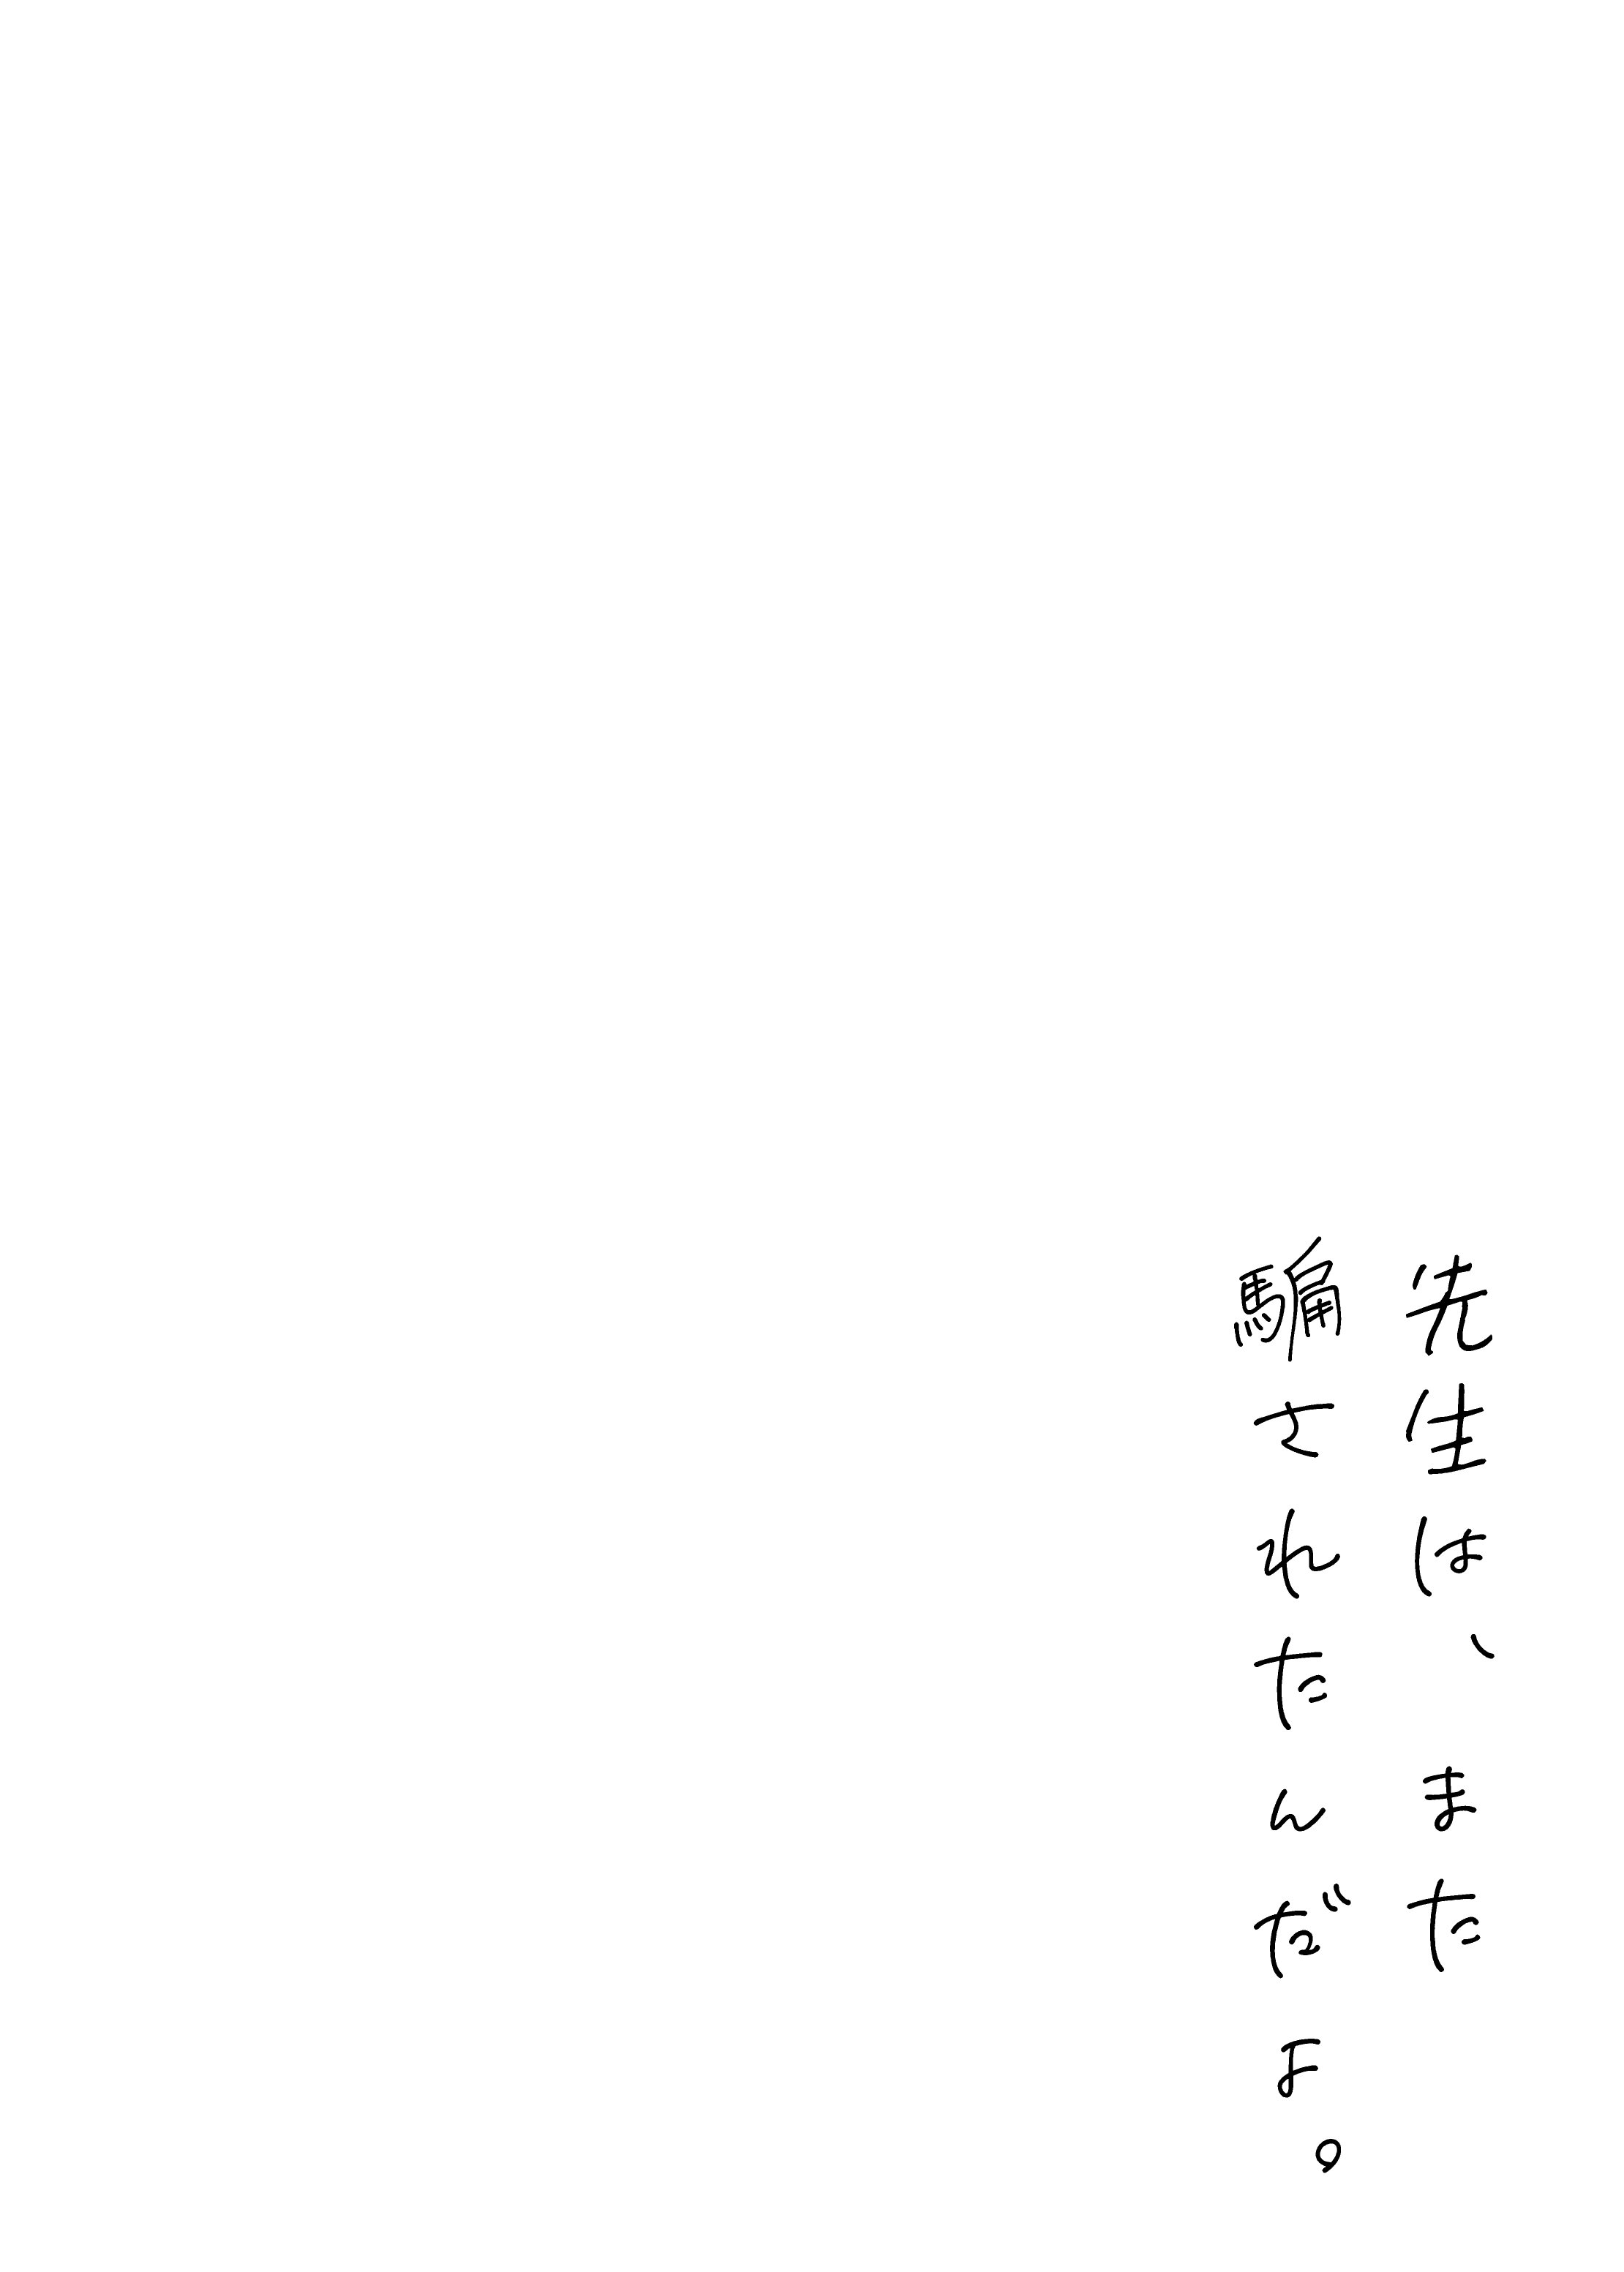 先生は、また
騙されたんだよ。